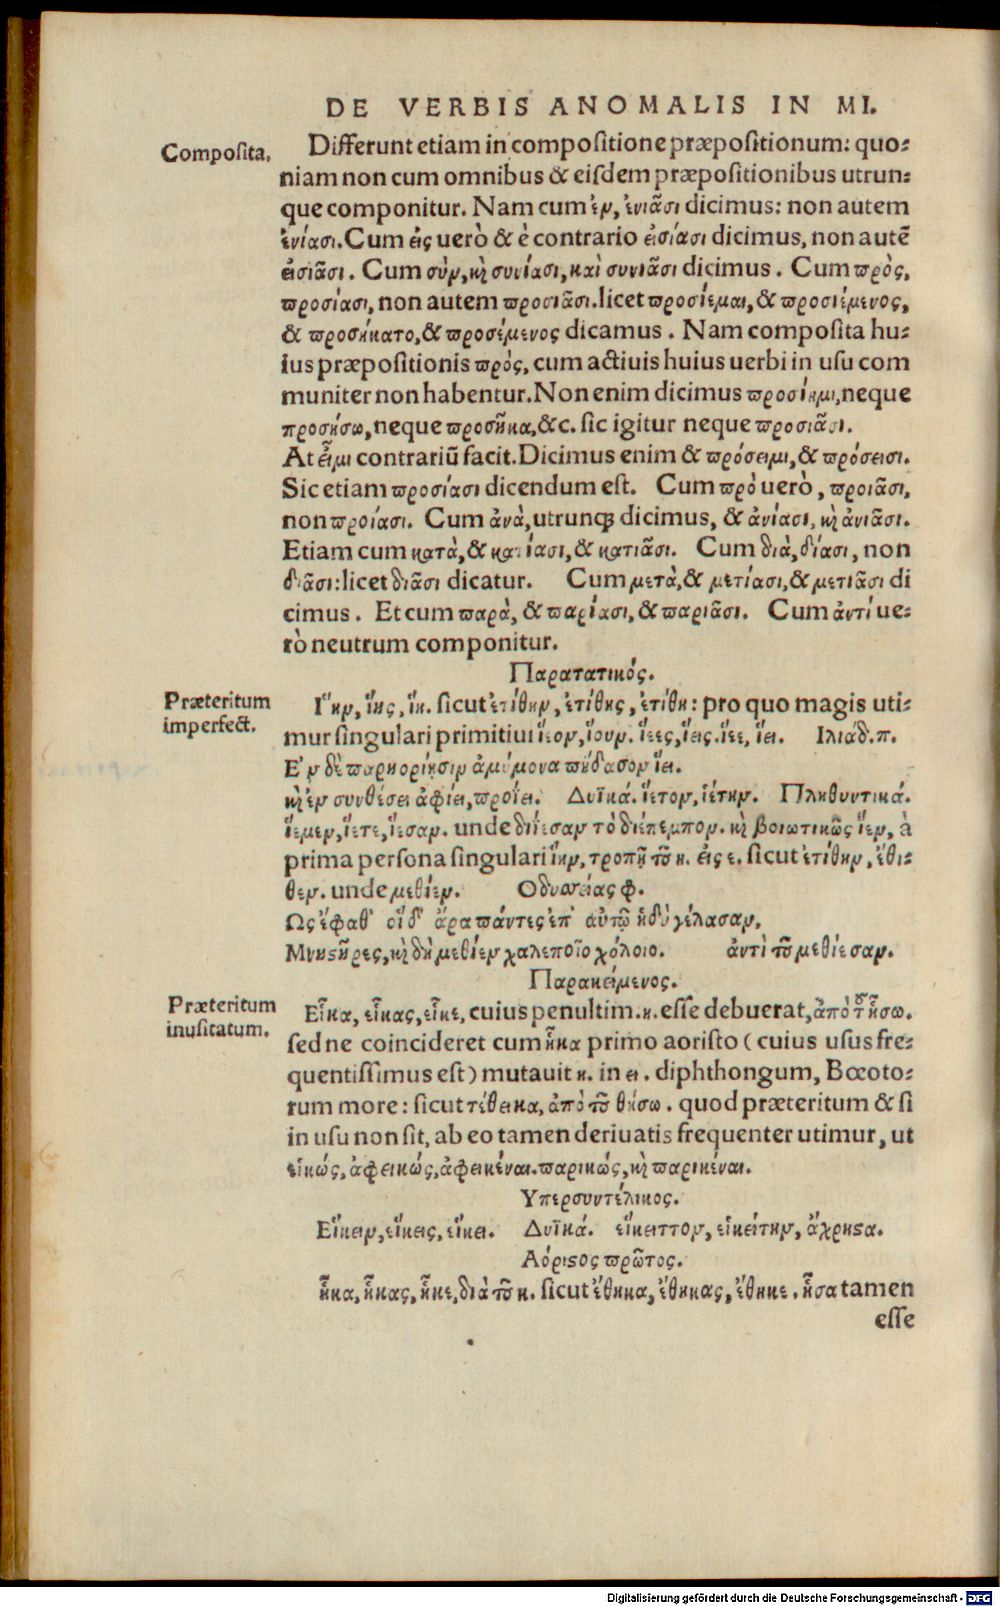 DE VERBIS ANOMALIS IN MI.
Composita.
Differunt etiam in compositione præpositionum: quo-
niam non cum omnibus & eisdem præpositionibus utrun-
que componitur. Nam cum ἐν, ἐνιᾶσι dicimus: non autem
ἐνίασι. Cum εἰς uerò & è contrario εἰσίασι dicimus, non autē
εἰσιᾶσι. Cum σὺν, καὶ συνίασι, καὶ συνιᾶσι dicimus. Cum πρὸς,
προσίασι, non autem προσιᾶσι. licet προσίεμαι, & προσιέμενος,
& προσήκατο, & προσέμενος dicamus. Nam composita hu-
ius præpositionis πρὸς, cum actiuis huius uerbi in usu com
muniter non habentur. Non enim dicimus προσίημι, neque
προσήσω, neque προσῆκα, &c. sic igitur neque προσιᾶσι.
At εἶμι contrariū facit. Dicimus enim & πρόσειμι, & πρόσεισι.
Sic etiam προσίασι dicendum est. Cum πρὸ uerò, προιᾶσι,
non προίασι. Cum ἀνὰ, utrunq; dicimus, & ἀνίασι, καὶ ἀνιᾶσι.
Etiam cum κατὰ, & κατίασι, & κατιᾶσι. Cum διὰ, δίασι, non
διᾶσι: licet διᾶσι dicatur. Cum μετὰ, & μετίασι, & μετιᾶσι di
cimus. Et cum παρὰ, & παρίασι, & παριᾶσι. Cum ἀντὶ ue-
rò neutrum componitur.
Παρατατικός.
Præteritum
imperfect.
Ἵην, ἵης, ἵη. sicut ἐτίθην, ἐτίθης, ἐτίθη: pro quo magis uti-
mur singulari primitiui ἵεον, ἵουν. ἵεες, ἵεις. ἵεε, ἵει. Ιλιάδ. π.
Εν δὲ παρηορίῃσιν ἀμύμονα πήδασον ἵει.
καὶ ἐν συνθέσει ἀφίει, προίει. Δυϊκά. ἵετον, ἱέτην. Πληθυντικά.
ἵεμεν, ἵετε, ἵεσαν. unde διίεσαν τὸ διέπεμπον. καὶ βοιωτικῶς ἵεν, à
prima persona singulari ἵην, τροπῇ τοῦ η. εἰς ε. sicut ἐτίθην, ἔθι-
θεν. unde μεθίεν. Οδυσσείας φ.
Ως ἔφαθ' οἵδ' ἄρα πάντες ἐπ' αὐτῷ ἡδὺ γέλασαν,
Μνηστῆρες, καὶ δὴ μεθίεν χαλεποῖο χόλοιο. ἀντὶ τοῦ μεθίεσαν.
Παρακείμενος.
Præteritum
inusitatum.
Εἷκα, εἷκας, εἷκε, cuius penultim. η. esse debuerat, ἀπὸ τοῦ ἥσω.
sed ne coincideret cum ἧκα primo aoristo ( cuius usus fre-
quentissimus est) mutauit η. in ει. diphthongum, Bœoto-
rum more: sicut τέθεικα, ἀπὸ τοῦ θήσω. quod præteritum & si
in usu non sit, ab eo tamen deriuatis frequenter utimur, ut
εἱκώς, ἀφεικώς, ἀφεικέναι. παρικώς, καὶ παρικέναι.
Υπερσυντέλικος.
Εἵκειν, εἵκεις, εἵκει. Δυϊκά. εἵκειττον, εἱκείτην, ἄχρηστα.
Αόριστος πρῶτος.
ἧκα, ἧκας, ἧκε, διὰ τοῦ κ. sicut ἔθηκα, ἔθηκας, ἔθηκε. ἧσα tamen
esse
Digitalisierung gefördert durch die Deutsche Forschungsgemeinschaft - DFG